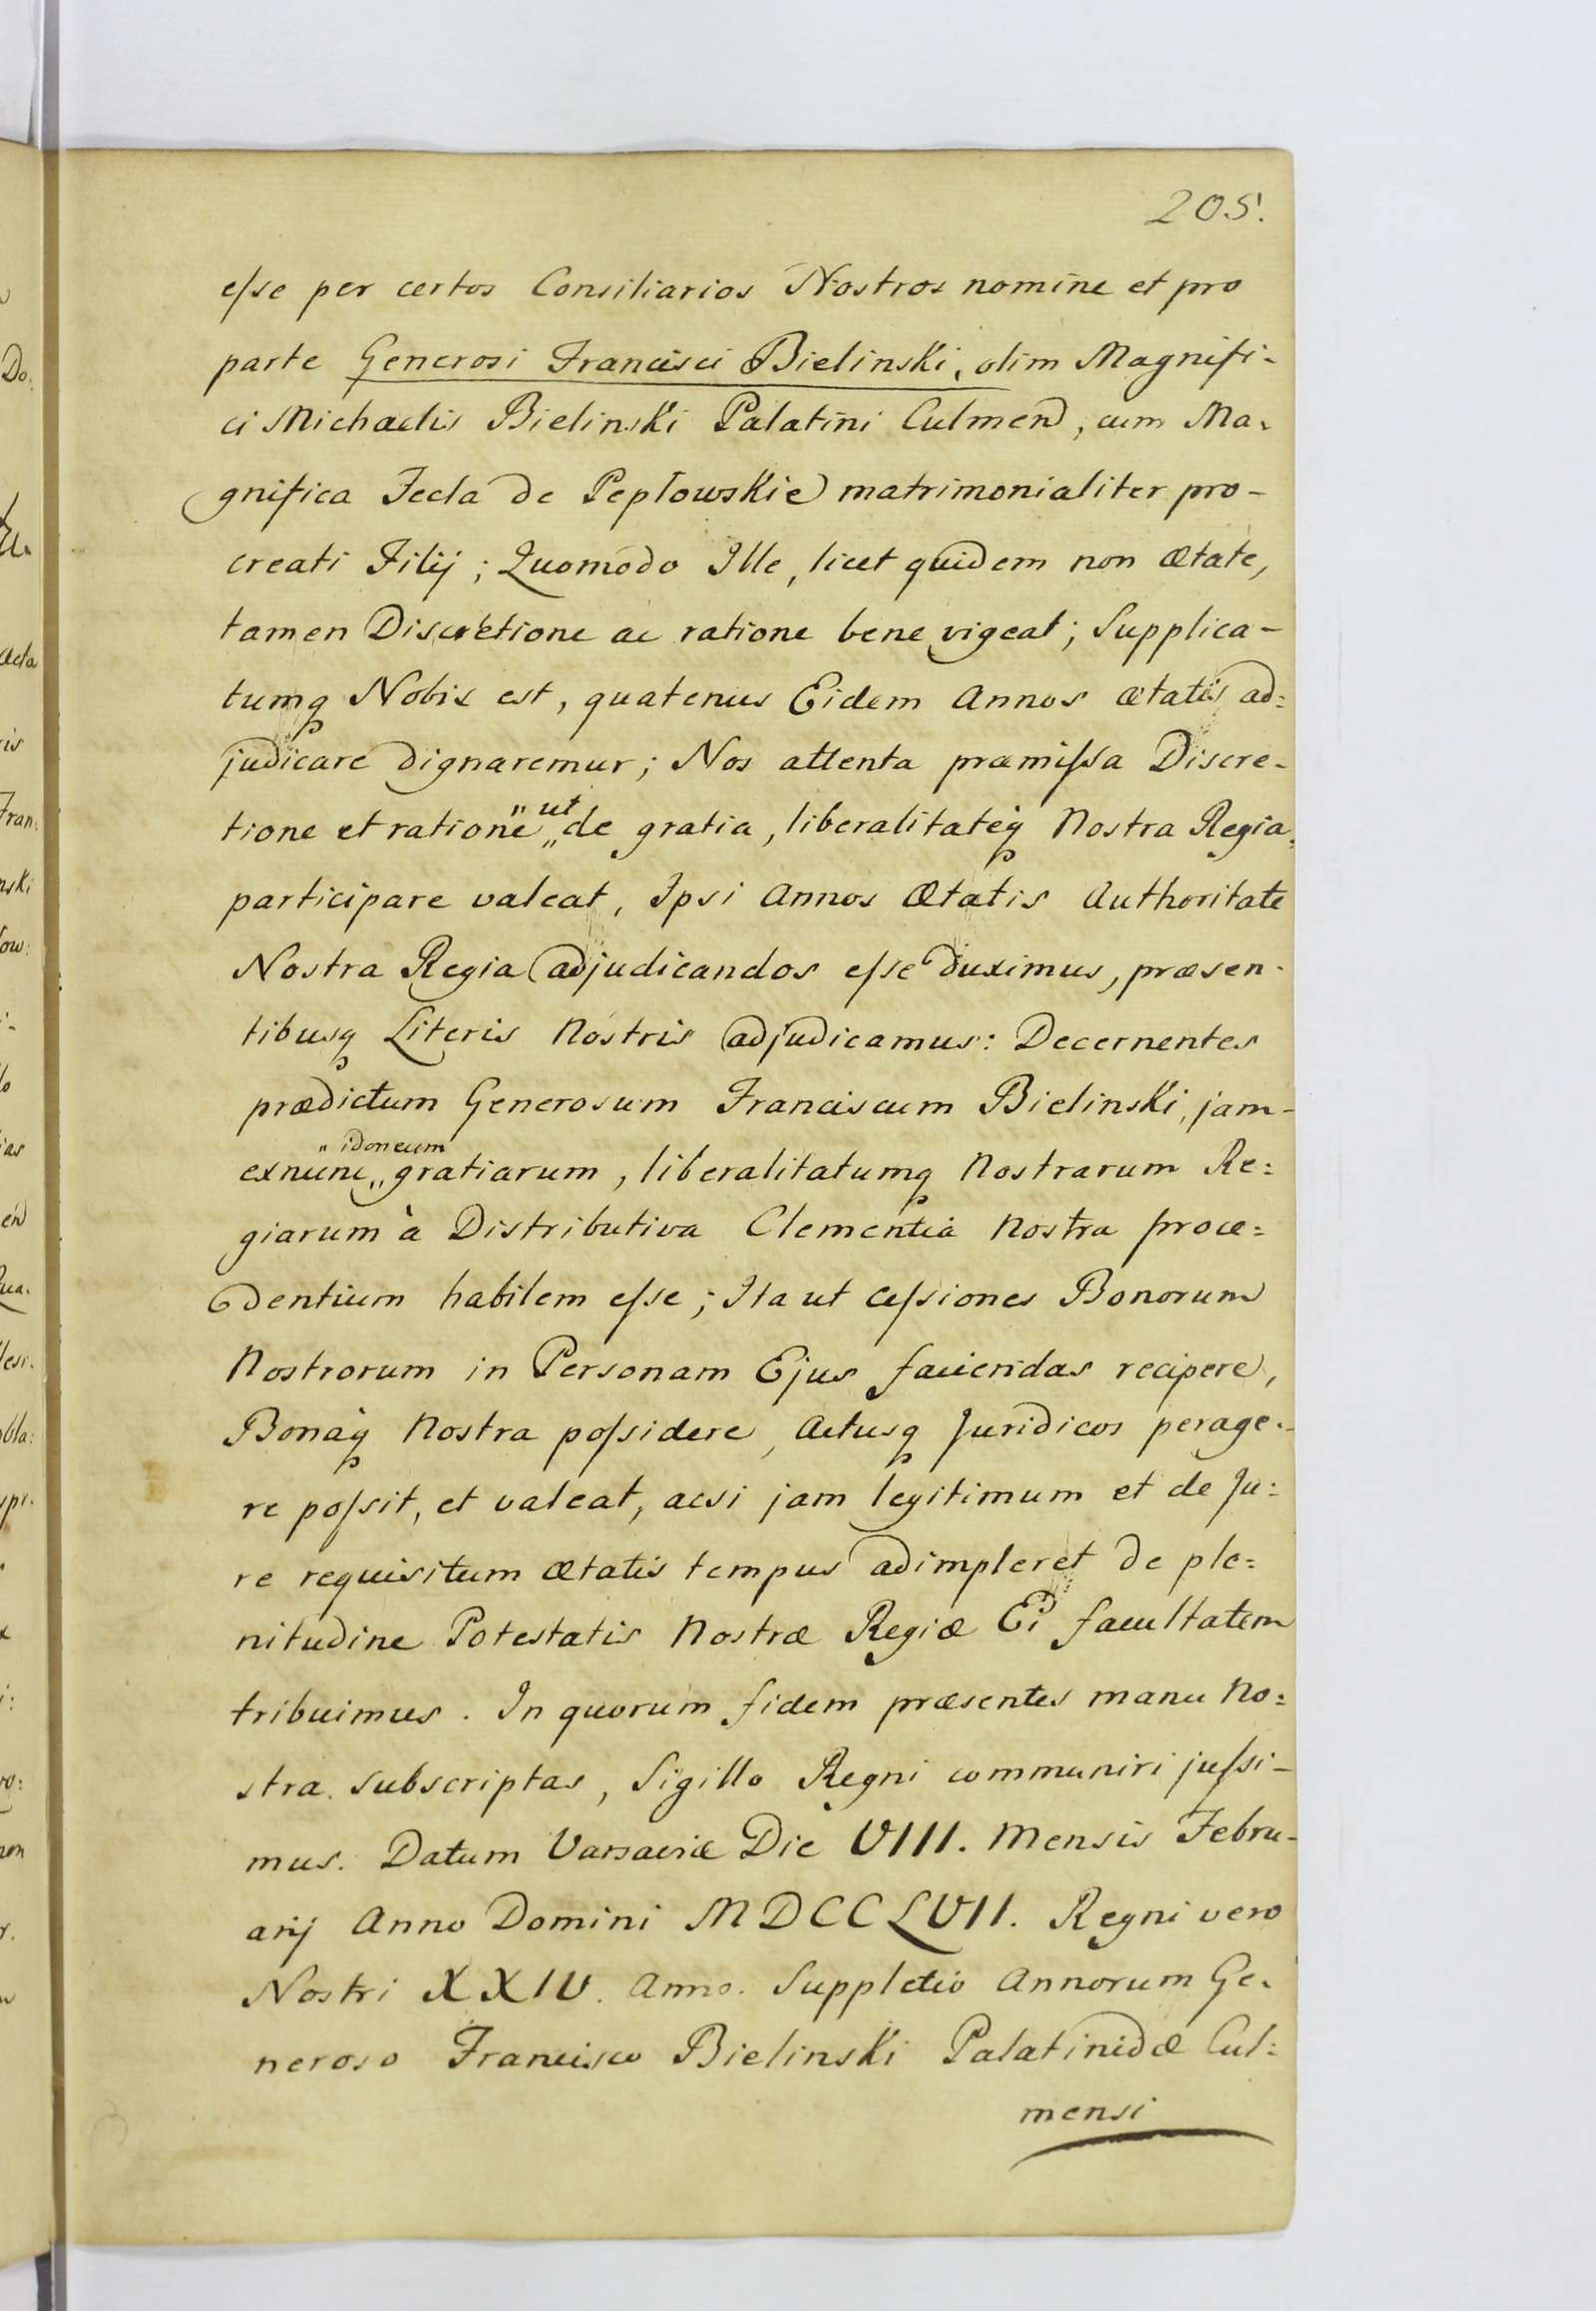 205.
esse per certos Consiliarios Nostros nomine et pro
parte Generosi Francisci Bielinski, olim Magnifi-
ci Michaelis Bielinski Palatini Culmen, cum Ma-
gnifica Tecla de Pepłowskie matrimonialiter pro-
creati Filij; Quomodo Ille, licet quidem non ætate,
tamen Discretione ac ratione bene vigeat; Supplica-
tumq Nobis est, quatenus Eidem Annos ætatis ad=
judicare dignaremur; Nos attenta præmissa Discre-
tione et ratione „ut„ de gratia, liberalitateq Nostra Regia,
participare valeat, Ipsi Annos Ætatis Authoritate
Nostra Regia adjudicandos esse duximus, præsen-
tibusq Literis Nostris adjudicamus: Decernentes
prædictum Generosum Franciscum Bielinski, jam-
exnunc „idoneum„ gratiarum, liberalitatumq Nostrarum Re=
giarum à Distributiva Clementia Nostra proce=
dentium habilem esse; Ita ut cessiones Bonorum
Nostrorum in Personam Ejus faciendas recipere,
Bonaq Nostra possidere, Actusq Juridicos perage-
re possit, et valeat, acsi jam legitimum et de Ju=
re requisitum ætatis tempus adimpleret de ple=
nitudine Potestatis Nostræ Regiæ Ei facultatem
tribuimus. In quorum fidem præsentes manu No=
stra subscriptas, Sigillo Regni communiri jussi-
mus. Datum Varsaviæ Die VIII. Mensis Febru-
arij Anno Domini MDCCLVII. Regni vero
Nostri XXIV. Anno. Suppletio Annorum Ge-
neroso Francisco Bielinski Palatinidæ Cul=
mensi